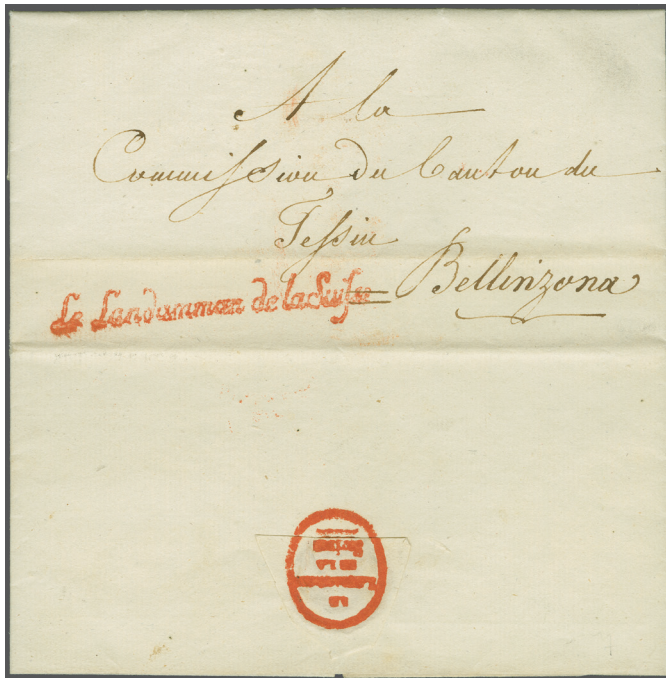 A la
Commission du Canton du
Tessin
= Bellinzona
Le Landamman de la Suisse